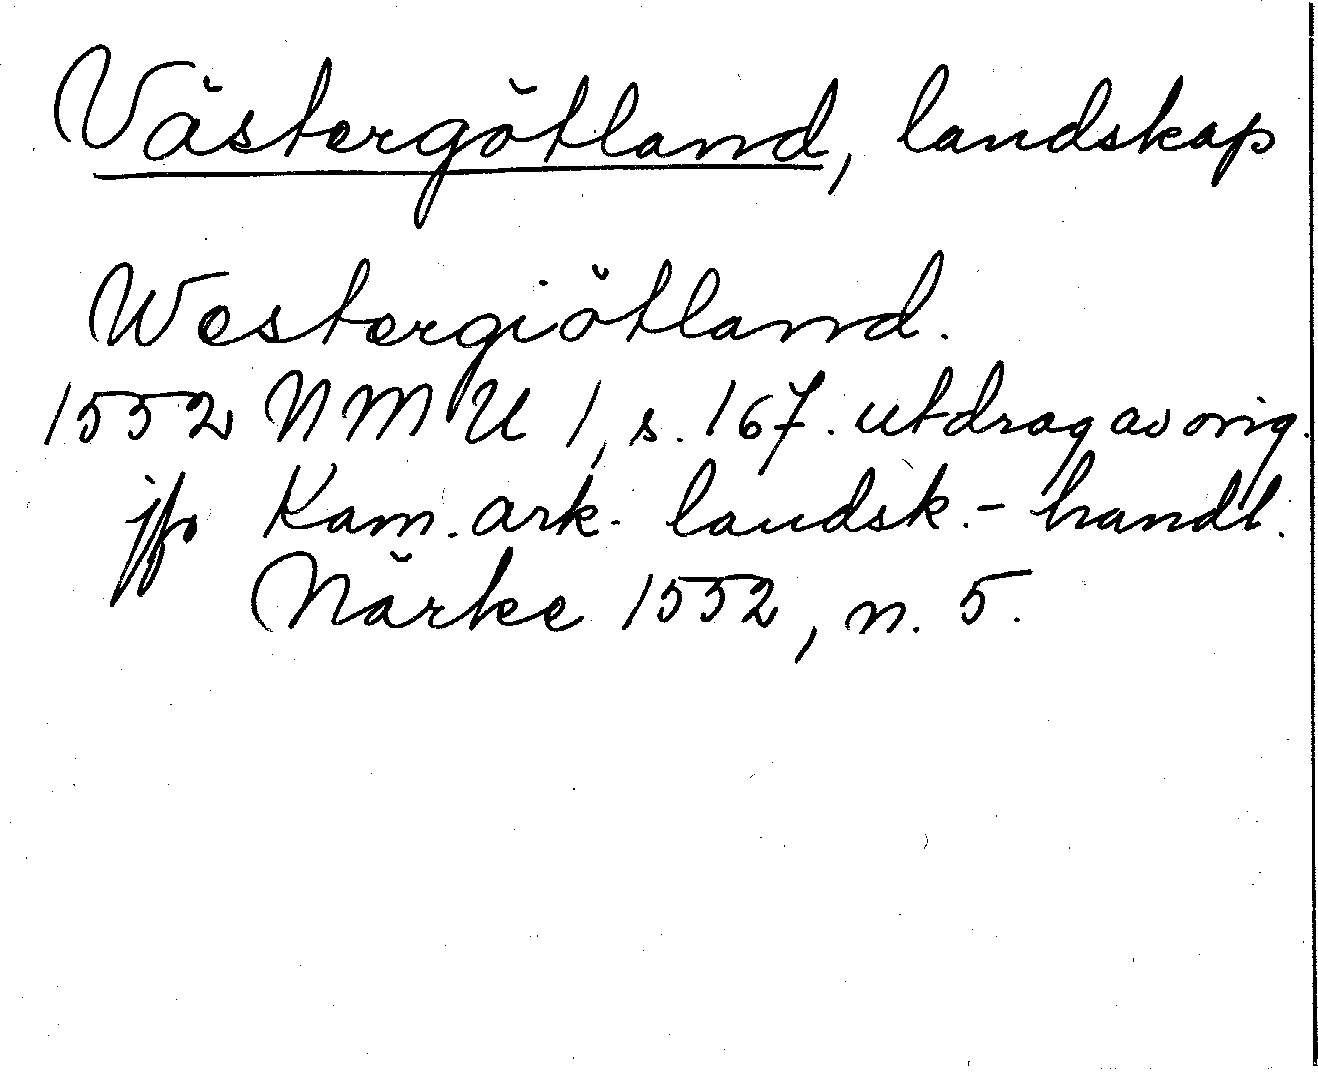 Västergötland, landskap
Westergiötland.
1552 NMU 1, s. 167. utdrag av orig.
jfr Kam. ark. landsk.- handl.
Närke 1552, n. 5.